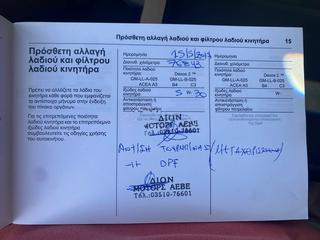 Πρόσθετη αλλαγή λαδιού και φίλτρου κινητήρα 15
Πρόσθετη αλλαγή
λαδιού και φίλτρου
λαδιού κινητήρα
Πρέπει να αλλάζετε το λάδι του
κινητήρα κάθε φορά που εμφανίζεται
το αντίστοιχο μήνυμα στην ένδειξη
του πίνακα οργάνων.
Για τις επιτρεπόμενες ποιότητες
λαδιού κινητήρα και το επιτρεπόμενο
ιξώδες λαδιού κινητήρα
συμβουλευτείτε τις οδηγίες χρήσης
του αυτοκινήτου.
Ημερομηνία
Διανυθ. χιλιόμετρα
Ποιότητα λαδιού κινητήρα Dexos 2 ™
GM-LL-A-025 GM-LL-B-025
ACEA A3 B4 C3
Ιξώδες λαδιού κινητήρα 5 W 30
Αντικατάσταση ή
αποστράγγιση
Ημερομηνία
Διανυθ. χιλιόμετρα
Ποιότητα λαδιού κινητήρα Dexos 2 ™
GM-LL-A-025 GM-LL-B-025
ACEA A3 B4 C3
Ιξώδες λαδιού κινητήρα W-
Αντικατάσταση ή
αποστράγγιση
ΔΙΩΝ
ΜΟΤΟΡΣ ΑΕΒΕ
Τηλ.: 03510-76601
DPF
ΔΙΩΝ
ΜΟΤΟΡΣ ΑΕΒΕ
Τηλ.: 03510-76601